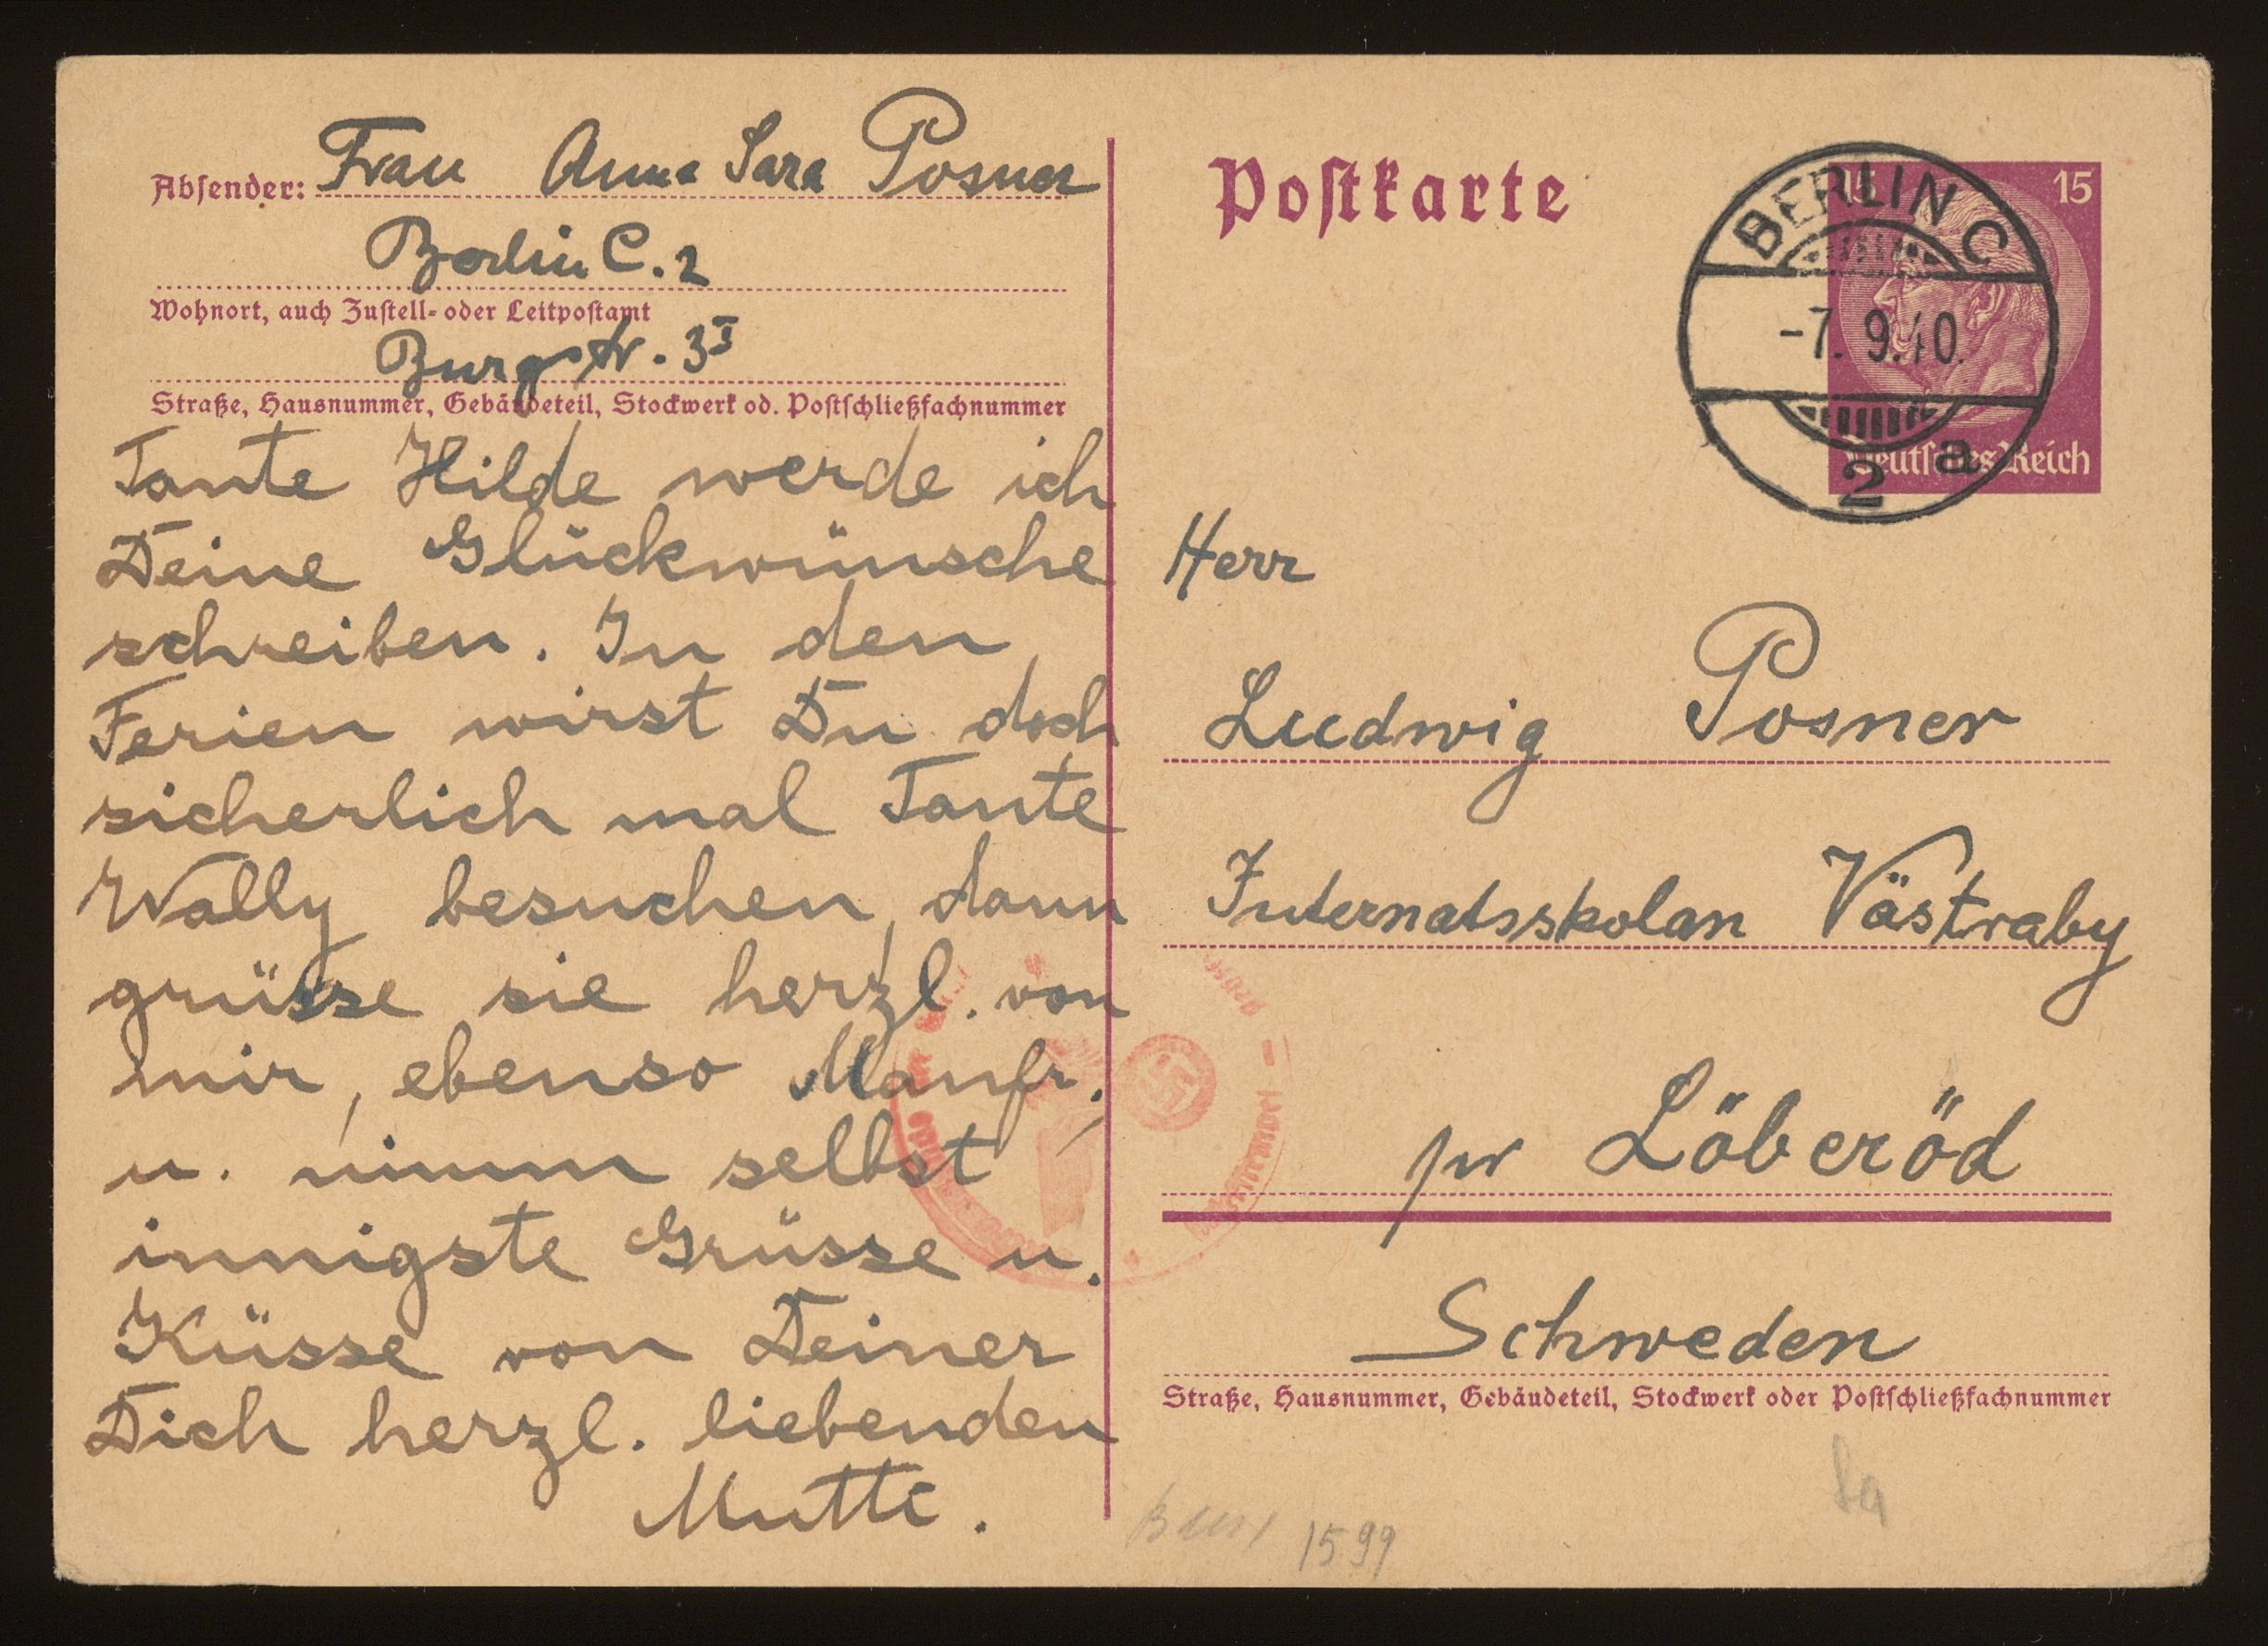 Absender: Frau Anna Sara Posner
Berlin C. 2
Wohnort, auch Zustell- oder Leitpostamt
Burgstr. 3I
Straße, Hausnummer, Gebäudeteil, Stockwerk od. Postschließfachnummer
Tante Hilde werde ich
Deine Glückwünsche
schreiben. In den
Ferien wirst Du doch
sicherlich mal Tante
Wally besuchen, dann
grüsse sie herzl. von
mir, ebenso Manfr.
u. nimm selbst
innigste Grüsse u.
Küsse von Deiner
Dich herzl. liebenden
Mutti.
Postkarte
15 15
Deutsches Reich
BERLIN C
-7. 9.40.
2 a
Herr
Ludwig Posner
Internatsskolan Västraby
pr Löberöd
Schweden
Straße, Hausnummer, Gebäudeteil, Stockwerk oder Postschließfachnummer
1599